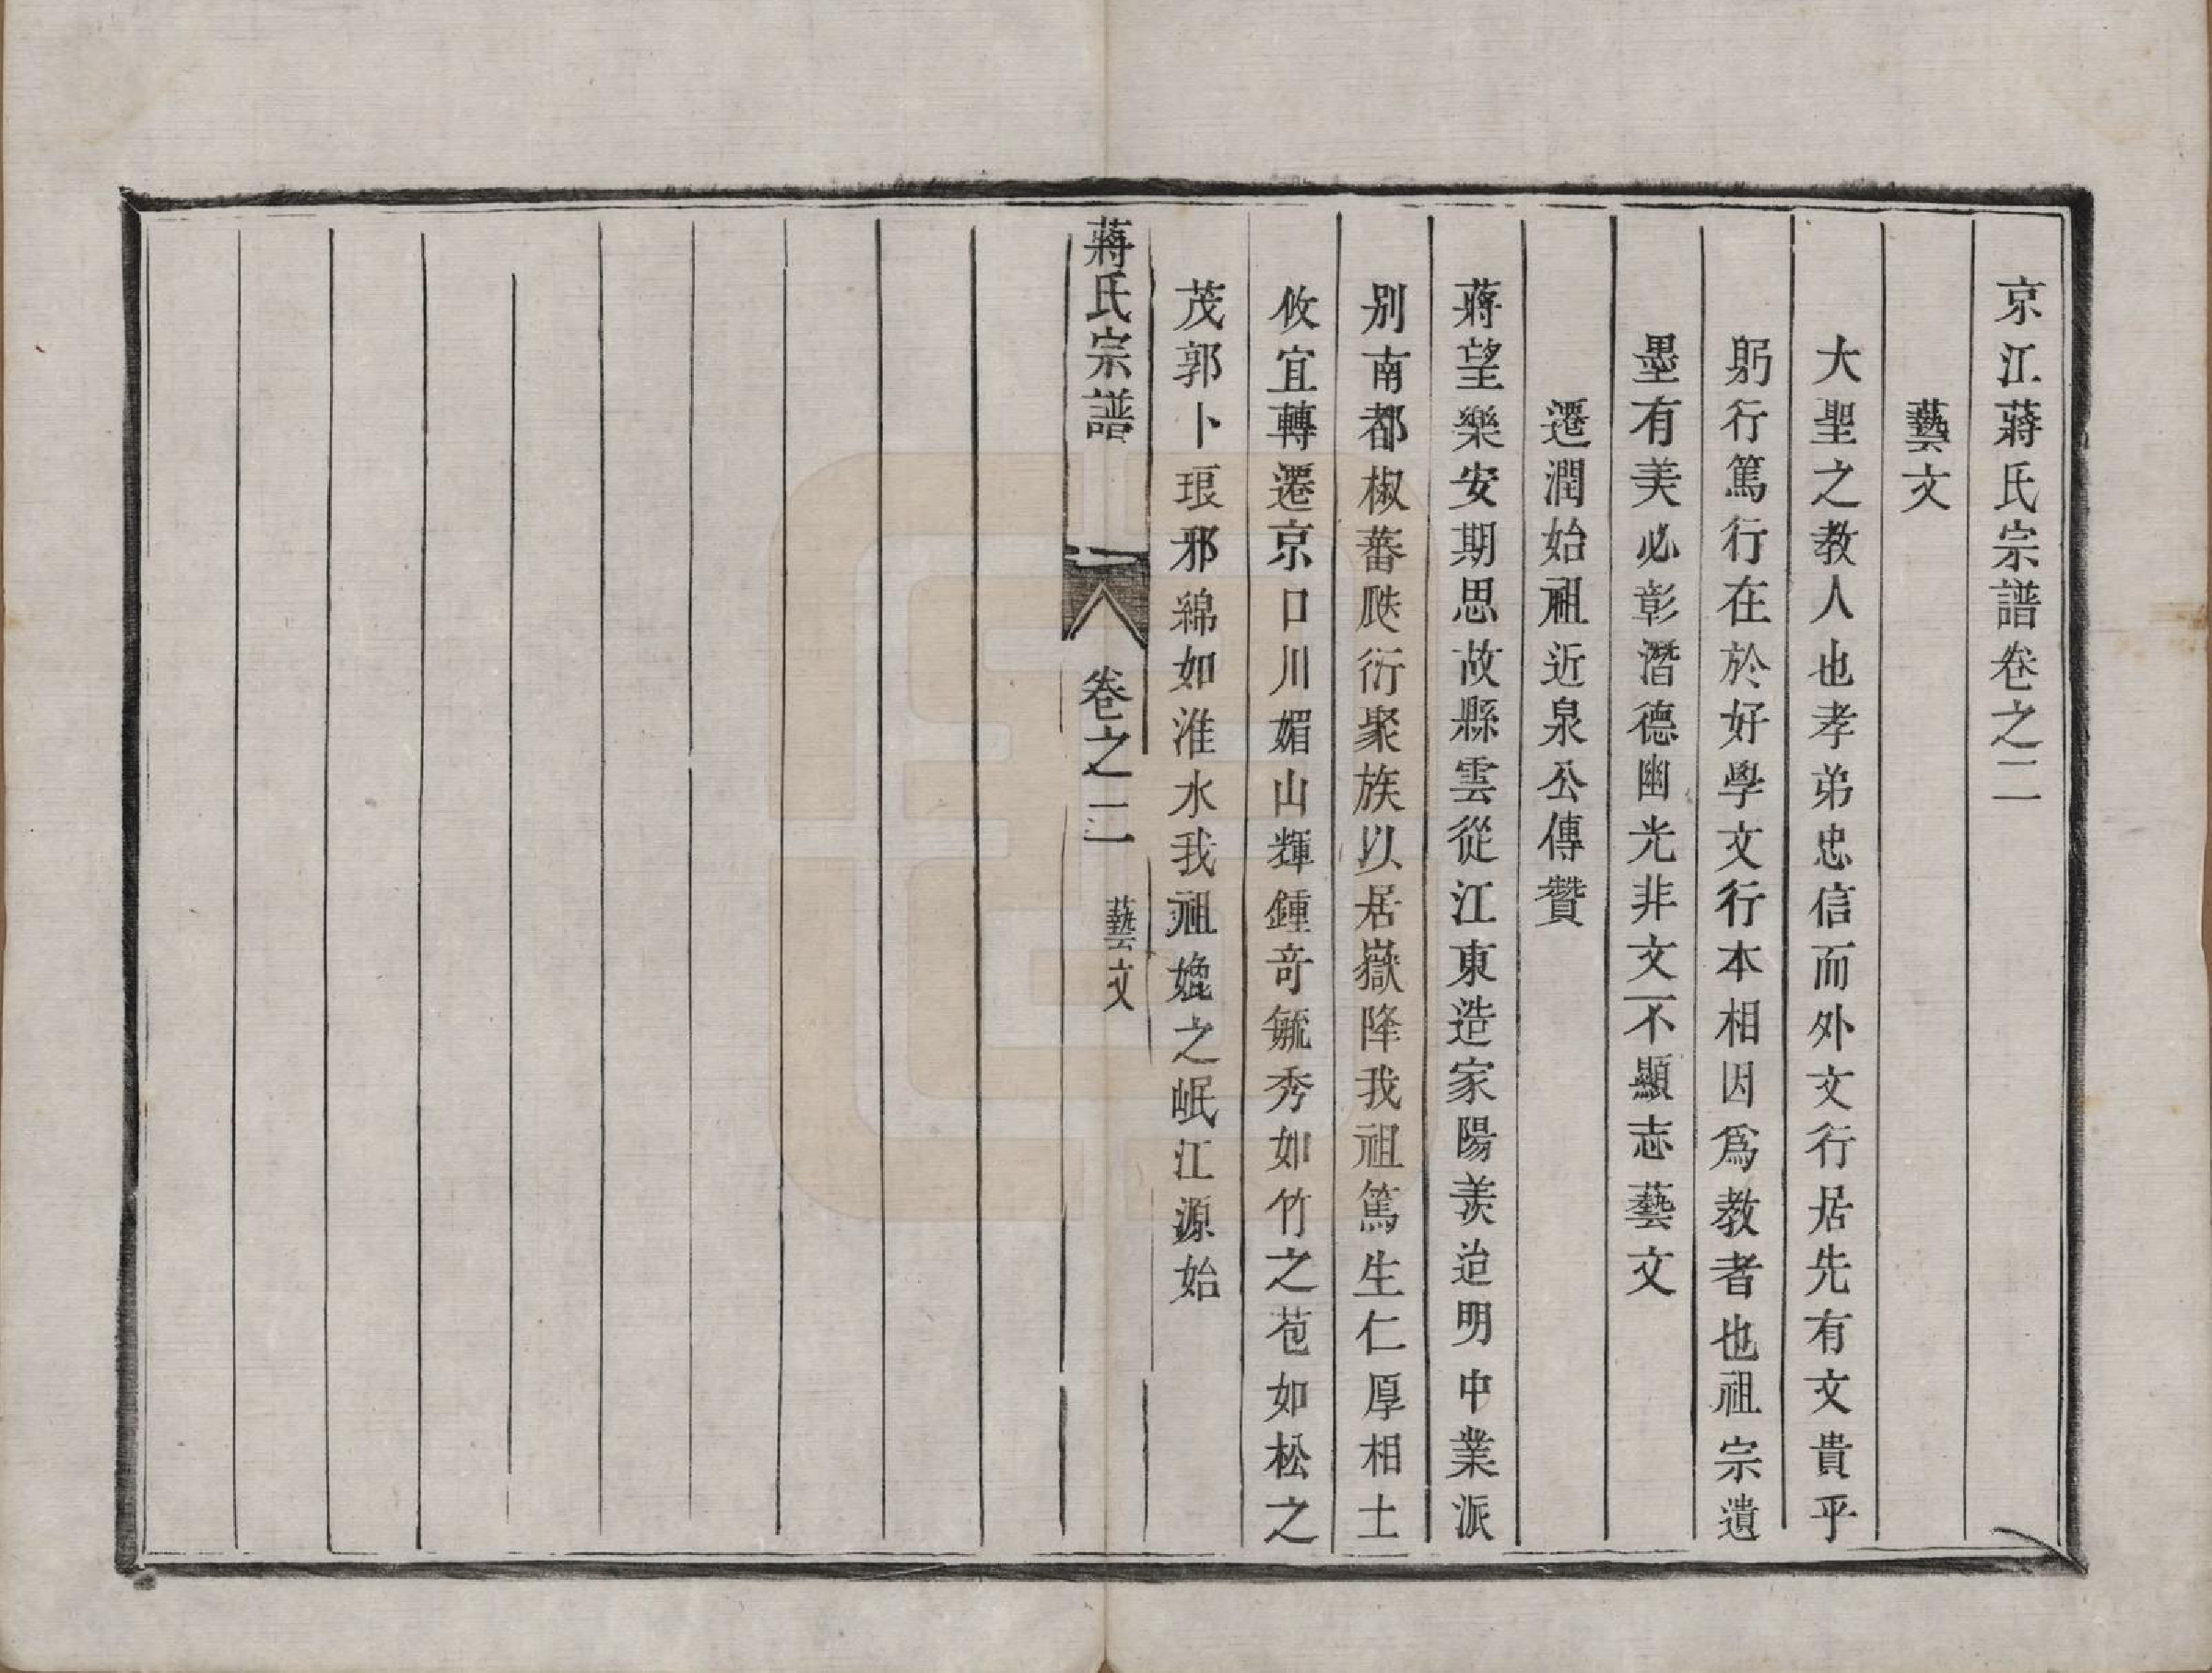 京江蔣氏宗譜卷之二
藝文
大聖之教人也孝弟忠信而外文行居先有文貴乎
躬行篤行在於好學文行本相因爲教者也祖宗遺
墨有美必彰潛德幽光非文不顯志藝文
遷潤始祖近泉公傳贊
蔣望樂安期思故縣雲從江東造家陽羨迨明中業派
別南都椒蕃瓞衍聚族以居嶽降我祖篤生仁厚相土
攸宜轉遷京口川媚山輝鍾竒毓秀如竹之苞如松之
茂郭卜琅邪綿如淮水我祖媲之岷江源始
蔣氏宗譜
卷之二
藝文